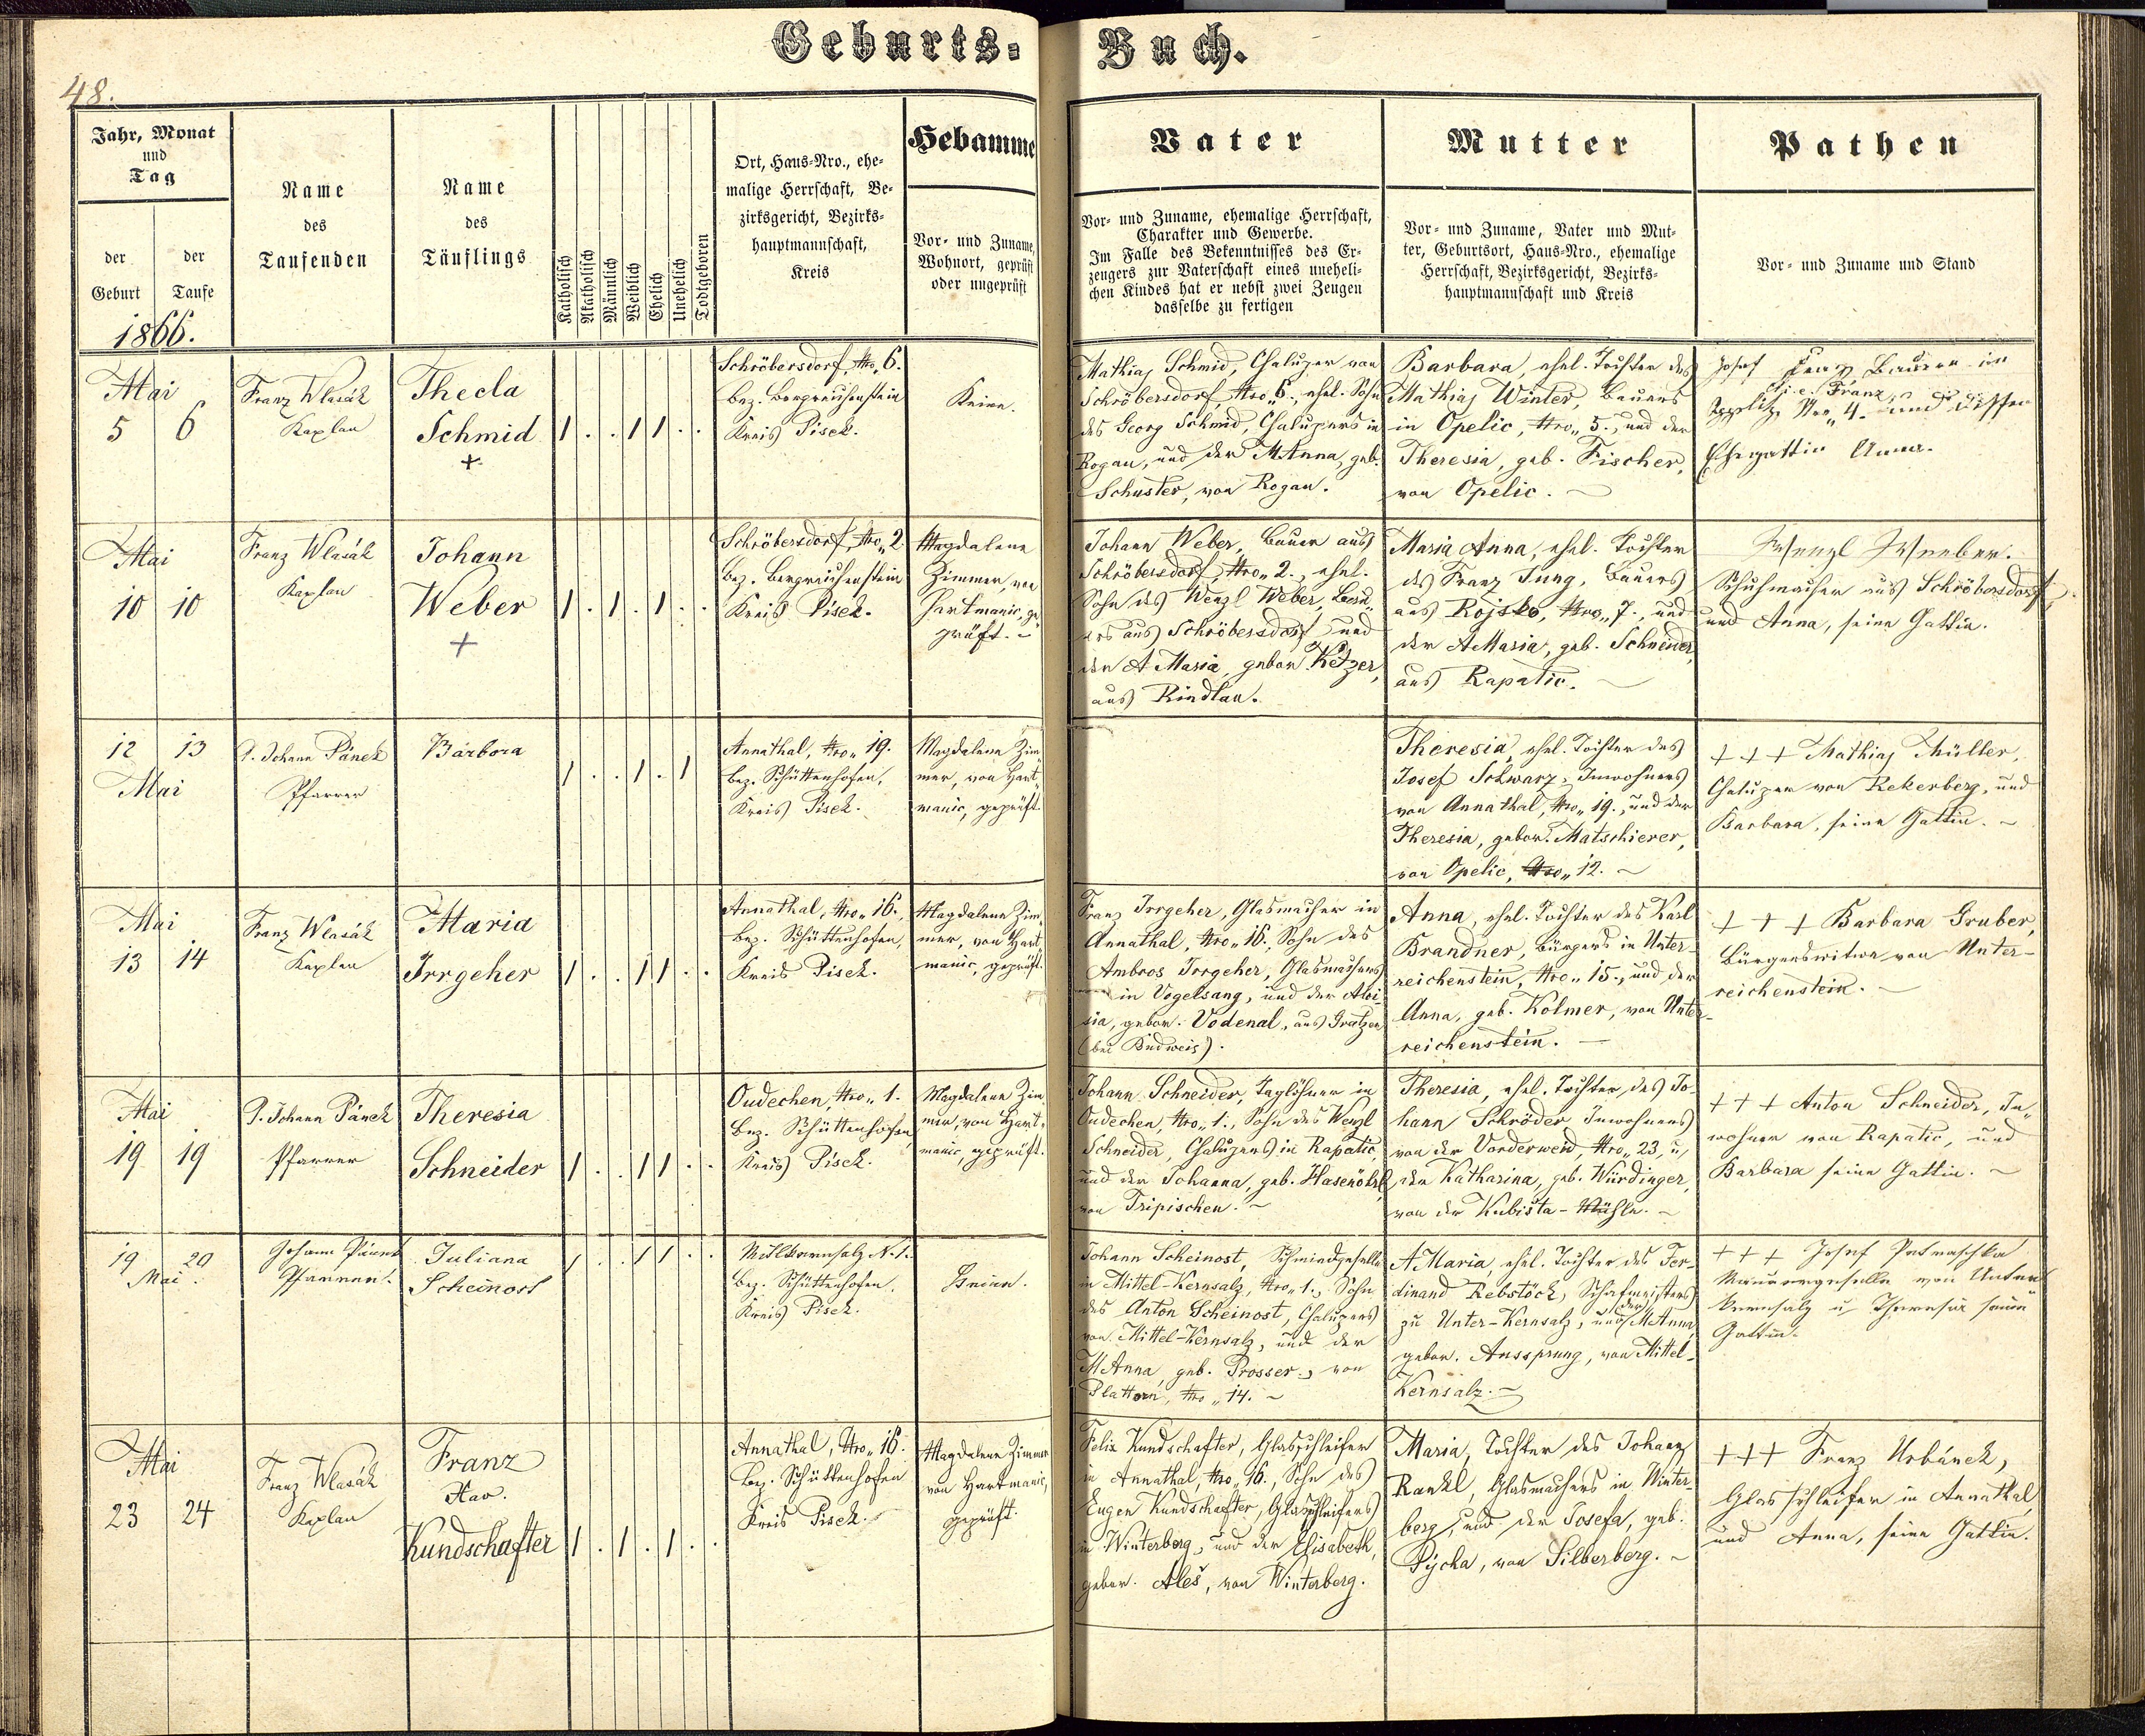 Geburts=Buch.
48.
Jahr, Monat
und
Tag
der
Geburt
der
Taufe
Name
des
Taufenden
Name
des
Täuflings
Katholisch
Akatholisch
Männlich
Weiblich
Ehelich
Unehelich
Todtgeboren
Ort, Haus=Nro., ehe=
malige Herrschaft, Be=
zirksgericht, Bezirks=
hauptmannschaft,
Kreis
Hebamme
Vor= und Zuname,
Wohnort, geprüft
oder ungeprüft
Vater
Vor= und Zuname, ehemalige Herrschaft,
Charakter und Gewerbe.
Im Falle des Bekenntnisses des Er=
zeugers zur Vaterschaft eines uneheli=
chen Kindes hat er nebst zwei Zeugen
dasselbe zu fertigen
Mutter
Vor= und Zuname, Vater und Mut=
ter, Geburtsort, Haus=Nro., ehemalige
Herrschaft, Bezirksgericht, Bezirks=
hauptmannschaft und Kreis
Pathen
Vor= und Zuname und Stand
1866.
Mai
5 6
Franz Wlasák
Kaplan
Thecla
Schmid
+
1 . . 1 1 . .
Schröbersdorf, Nro„ 6.
Bez. Bergreichenstein
Kreis Pisek.
Keine.
Mathias Schmid, Chaluper von
Schröbersdorf Nro„ 6., ehel. Sohn
des Georg Schmid, Chalupers in
Rogau, und der M.Anna, geb.
Schuster, von Rogau.
Barbara, ehel. Tochter des
Mathias Winter, Bauers
in Opelic, Nro„ 5., und der
Theresia, geb. Fischer,
von Opelic.
Josef
Bauer in
i. e. Franz
Nro„ 4. und dessen
Ehegattin Anna.
Mai
10 10
Franz Wlasák
Kaplan
Johann
Weber
+
1 . 1 . 1 . .
Schröbersdorf, Nro„ 2.
Bez. Bergreichenstein
Kreis Pisek.
Magdalena
Zimmer, von
Hartmanic, ge„
prüft.
Johann Weber, Bauer aus
Schröbersdorf, Nro„ 2., ehel.
Sohn des Wenzl Weber, Bau„
ers aus Schröbersdorf und
der A Maria, gebor. Ketzer,
aus Rindlau.
Maria Anna, ehel. Tochter
des Franz Jung, Bauers
aus Rojsko, Nro„ 7., und
der A Maria, geb. Schneider,
aus Rapatic.
Wenzl Weeber.
Schuhmacher aus Schröbersdorf,
und Anna, seine Gattin.
12 13
Mai
P. Johann Pánek
Pfarrer
Bárbora
1 . . 1 . 1
Annathal, Nro„ 19.
Bez. Schüttenhofen,
Kreis Pisek.
Magdalena Zim„
mer, von Hart„
manic, geprüft.
Theresia, ehel. Tochter des
Josef Schwarz, Inwohners
von Annathal, Nro„ 19., und der
Theresia, gebor. Matschierer,
von Opelic, Nro„ 12.
+ + + Mathias Müller,
Chaluper von Rekerberg, und
Barbara, seine Gattin.
Mai
13 14
Franz Wlasák
Kaplan
Maria
Irrgeher
1 . . 1 1 . .
Annathal, Nro„ 16.,
Bez. Schüttenhofen,
Kreis Pisek.
Magdalena Zim„
mer, von Hart„
manic, geprüft.
Franz Irrgeher, Glasmacher in
Annathal, Nro„ 16., Sohn des
Ambros Irrgeher, Glasmachers
in Vogelsang, und der Aloi„
sia, gebor. Vodenal, aus Gratzen
(bei Budweis).
Anna, ehel. Tochter des Karl
Brandner, Bürgers in Unter-
reichenstein, Nro„ 15., und der
Anna, geb. Kolmer, von Unter-
reichenstein.
+ + + Barbara Gruber,
Bürgerswitwe von Unter-
reichenstein.
Mai
19 19
P. Johann Pánek
Pfarrer
Theresia
Schneider
1 . . 1 1 . .
Oudechen, Nro„ 1.
Bez. Schüttenhofen
Kreis Pisek.
Magdalena Zim„
mer, von Hart„
manic, geprüft.
Johann Schneider, Taglöhner in
Oudechen, Nro„ 1., Sohn des Wenzl
Schneider, Chalupers in Rapatic,
und der Johanna, geb. Hasenöhrl,
von Tripischen.
Theresia, ehel. Tochter des Jo-
hann Schröder Inwohners
von der Vorderweid, Nro„ 23, u,
der Katharina, geb. Würdinger,
von der Kubista-Mühle.
+ + + Anton Schneider, In„
wohner von Rapatic, und
Barbara seine Gattin.
19 20
Mai.
Johann Pánek
Pfarrer.
Juliana
Scheinost
1 . . 1 1 . .
Mittlkernsalz N. 1.
Bez. Schüttenhofen.
Kreis Pisek.
Keine.
Johann Scheinost, Schmiedgeselle
in Mittel-Kernsalz, Nro„ 1., Sohn
des Anton Scheinost, Chalupers
von Mittel-Kernsalz, und der
M.Anna, geb. Prosser, von
Plattorn, Nro„ 14.
A Maria, ehel. Tochter des Fer-
dinand Rebstöck, Schafmeisters
zu Unter-Kernsalz, und der M.Anna
gebor. Aussprung, von Mittel-
Kernsalz.
+ + + Josef Petraschka
Maurergeselle von Unter
Kernsalz u. Theresia seine
Gattin.
Mai
23 24
Franz Wlasák
Kaplan
Franz
Xav.
Kundschafter
1 . 1 . 1 . .
Annathal, Nro„ 16.
Bez. Schüttenhofen
Kreis Pisek.
Magdalena Zimmer
von Hartmanic,
geprüft.
Felix Kundschafter, Glasschleifer
in Annathal, Nro„ 16., Sohn des
Eugen Kundschafter, Glasschleifers
in Winterberg, und der Elisabeth,
gebor. Aleš, von Winterberg.
Maria, Tochter des Johann
Rankl, Glasmachers in Winter-
berg, und der Josefa, geb.
Pýcha, von Silberberg.
+ + + Franz Urbánek,
Glasschleifer in Annathal,
und Anna, seine Gattin.